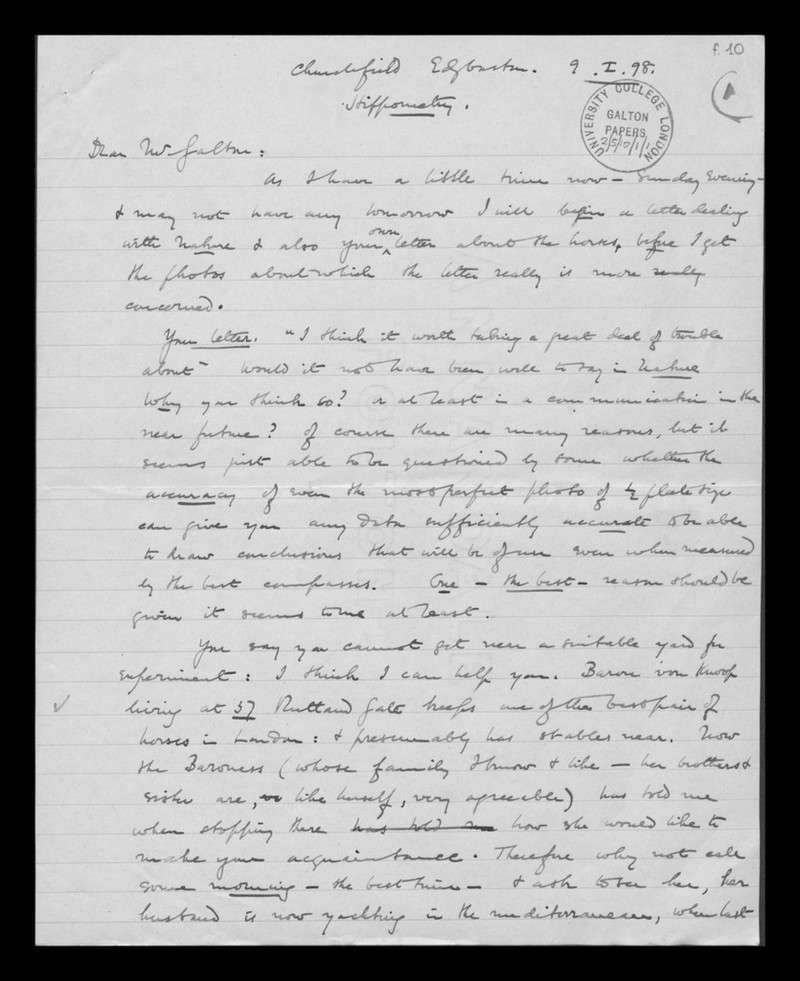 f. 10
A
Churchfield Edgbaston. 9.I.98.
Hippometry.
UNIVERSITY COLLEGE LONDON
GALTON
PAPERS
2/5/10/1/1
Dear Mr Galton:
As I have a little time now – Sunday Evening –
& may not have any tomorrow I will begin a letter dealing
with Nature & also your own letter about the horses, before I get
the photos about which the letter really is more really
concerned.
Your letter. "I think it worth taking a great deal of trouble
about" would it not have been well to say in Nature
why you think so? or at least in a communication in the
near future? Of course there are many reasons, but it
seems just able to be questioned by some whether the
accuracy of even the most perfect photo of ½ plate size
can give you any data sufficiently accurate to be able
to draw conclusions that will be of use even when measured
by the best compasses. One – the best – reason should be
given it seems to me at least.
You say you cannot get near a suitable yard for
experiment: I think I can help you. Baron von Knoop
living at 57 Rutland Gate keeps one of the best pair of
horses in London: & presumably has stables near. Now
the Baroness (whose family I know & like – her brothers &
sister are, like herself, very agreeable) has told me
when stopping there has told me how she would like to
make your acquaintance. Therefore why not call
some morning – the best time – & ask to see her, her
husband is now yachting in the mediterranean, when last